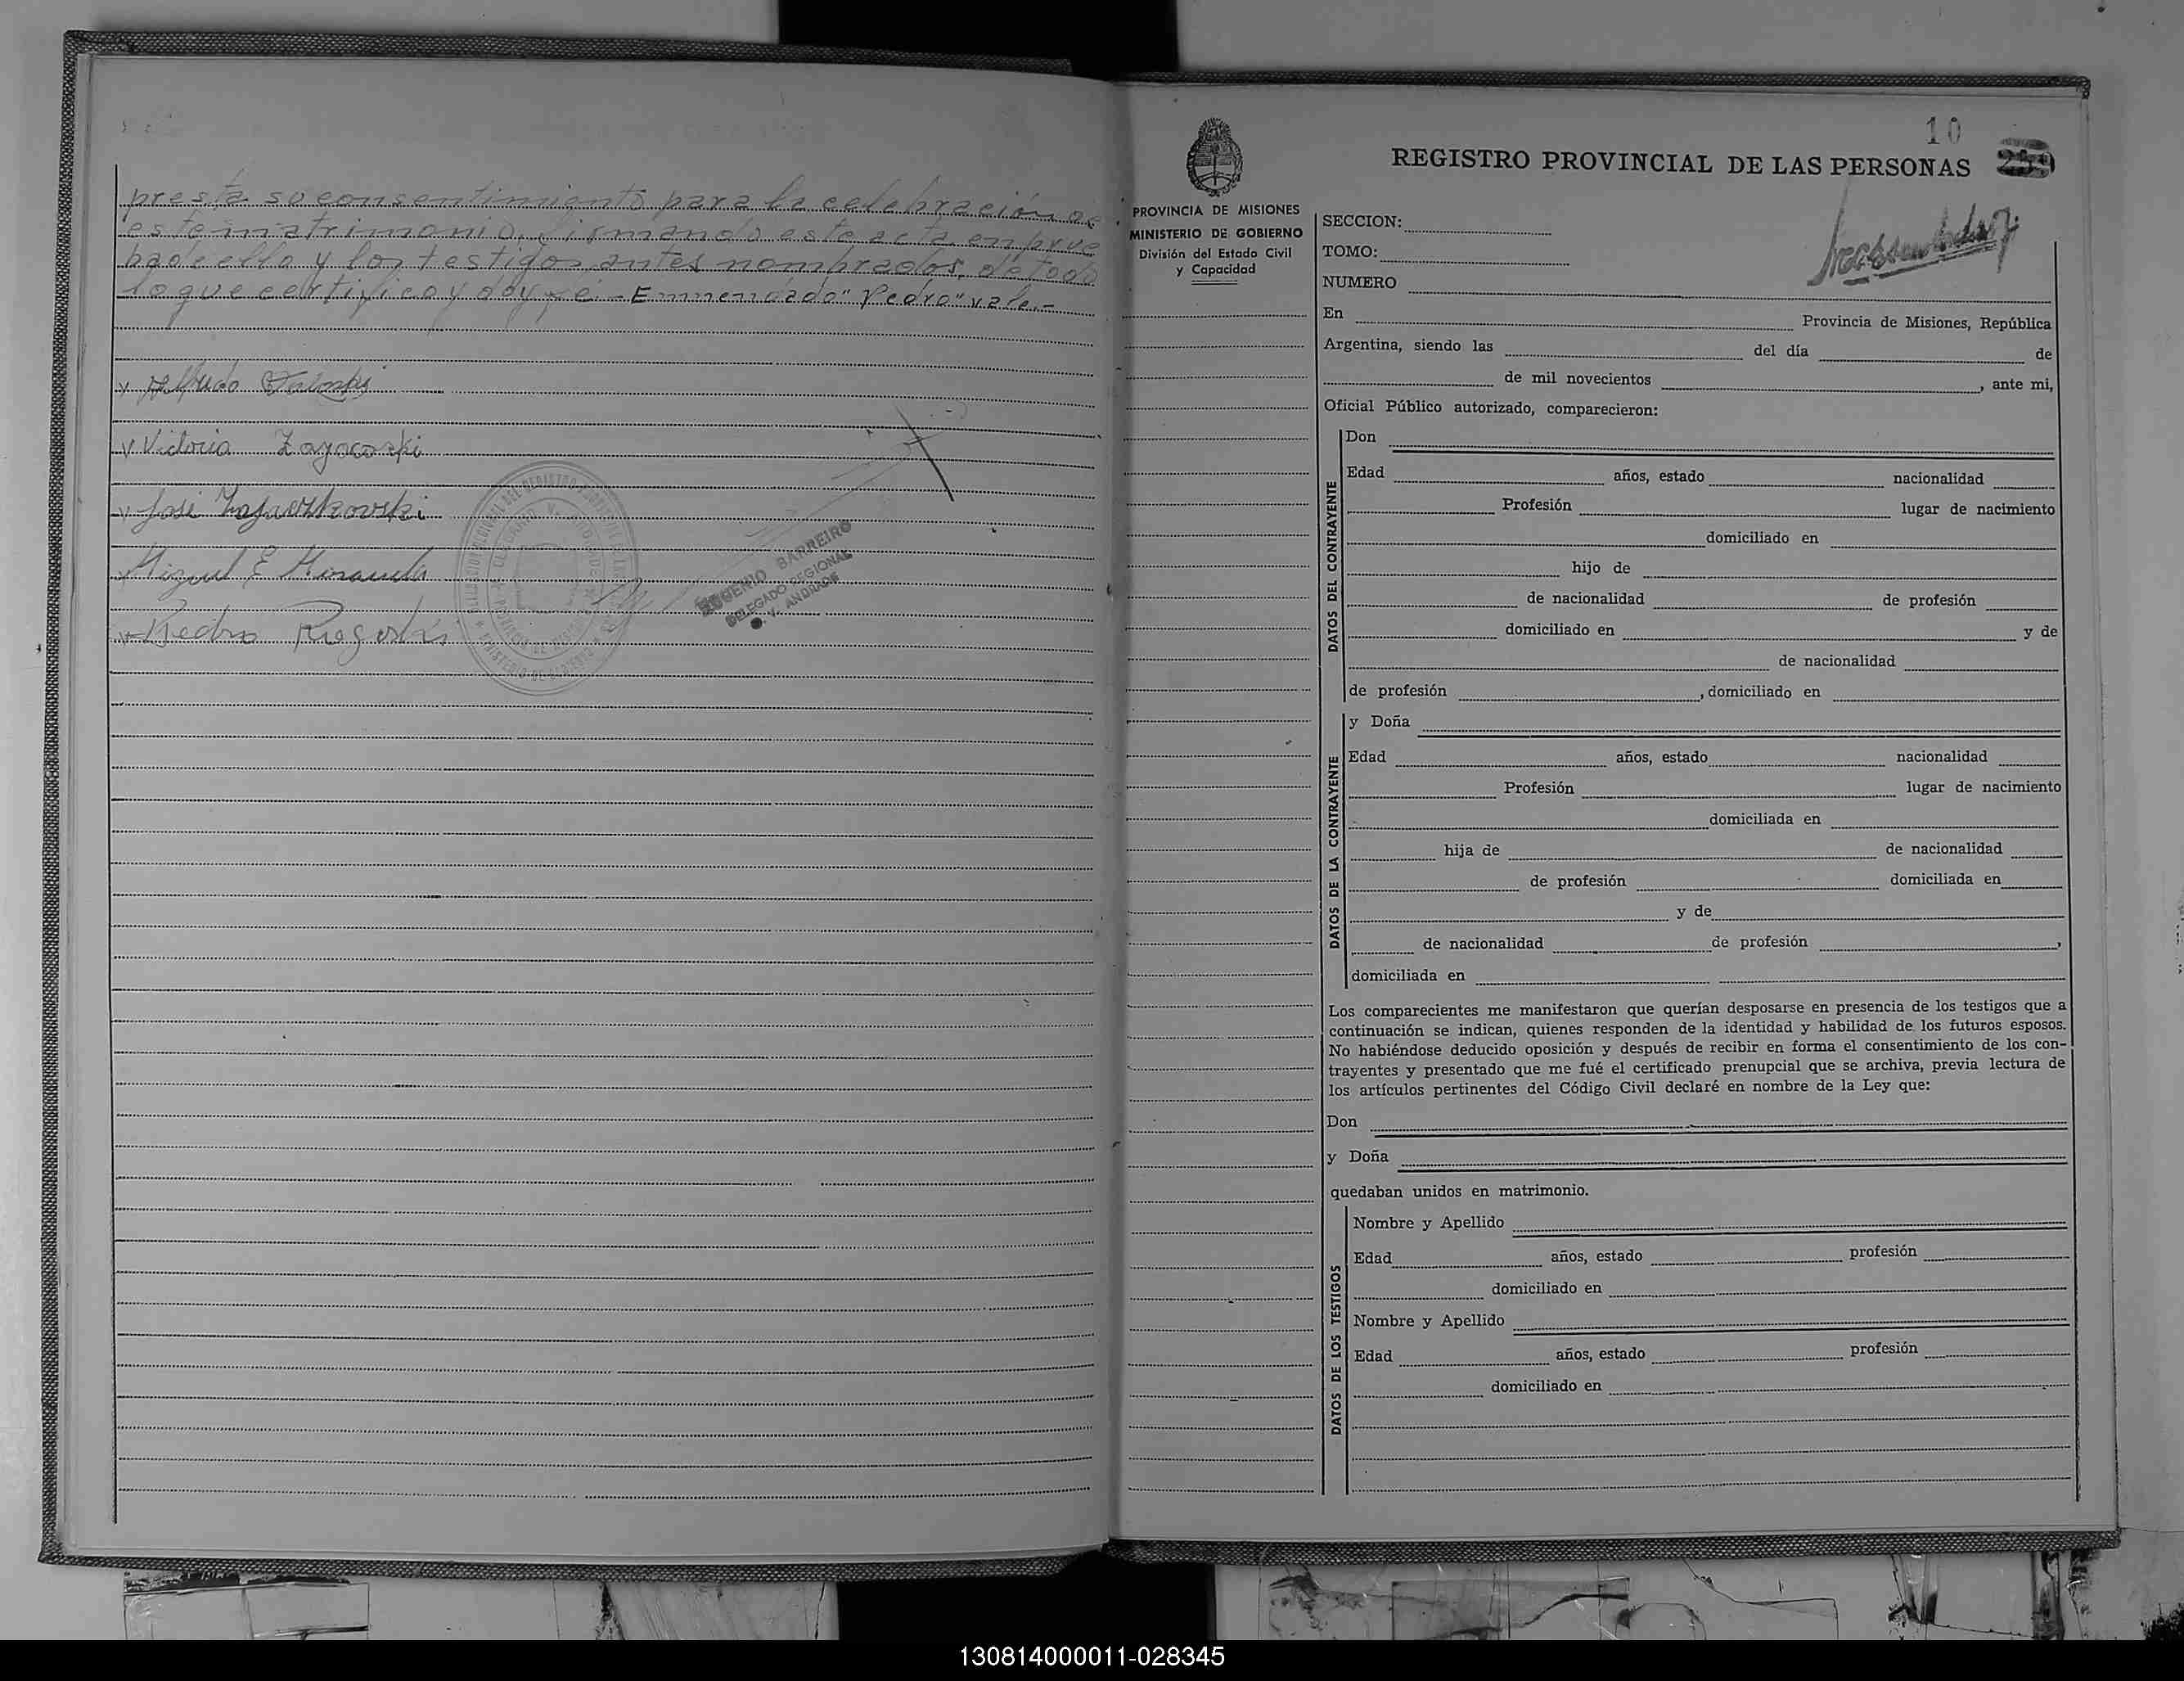 presta su consentimiento para la celebración de
este matrimonio, firmando este acta en prue
ba de ello y los testigos antes nombrados, de todo
lo que certifico y doy fé.- Enmendado "Pedro" vale.-
Alfredo
Victoria Zayacoski
José
Miguel E Miranda
Pedro
EUGENIO BARREIRO
DELEGADO REGIONAL
10
REGISTRO PROVINCIAL DE LAS PERSONAS 259
PROVINCIA DE MISIONES
MINISTERIO DE GOBIERNO
División del Estado Civil
y Capacidad
SECCION:
TOMO:
NUMERO
En Provincia de Misiones, República
Argentina, siendo las del día de
de mil novecientos , ante mi,
Oficial Público autorizado, comparecieron:
DATOS DEL CONTRAYENTE
Don
Edad años, estado nacionalidad
Profesión lugar de nacimiento
domiciliado en
hijo de
de nacionalidad de profesión
domiciliado en y de
de nacionalidad
de profesión , domiciliado en
DATOS DE LA CONTRAYENTE
y Doña
Edad años, estado nacionalidad
Profesión lugar de nacimiento
domiciliada en
hija de de nacionalidad
de profesión domiciliada en
y de
de nacionalidad de profesión ,
domiciliada en
Los comparecientes me manifestaron que querían desposarse en presencia de los testigos que a
continuación se indican, quienes responden de la identidad y habilidad de los futuros esposos.
No habiéndose deducido oposición y después de recibir en forma el consentimiento de los con-
trayentes y presentado que me fué el certificado prenupcial que se archiva, previa lectura de
los artículos pertinentes del Código Civil declaré en nombre de la Ley que:
Don
y Doña
quedaban unidos en matrimonio.
DATOS DE LOS TESTIGOS
Nombre y Apellido
Edad años, estado profesión
domiciliado en
Nombre y Apellido
Edad años, estado profesión
domiciliado en
130814000011-028345